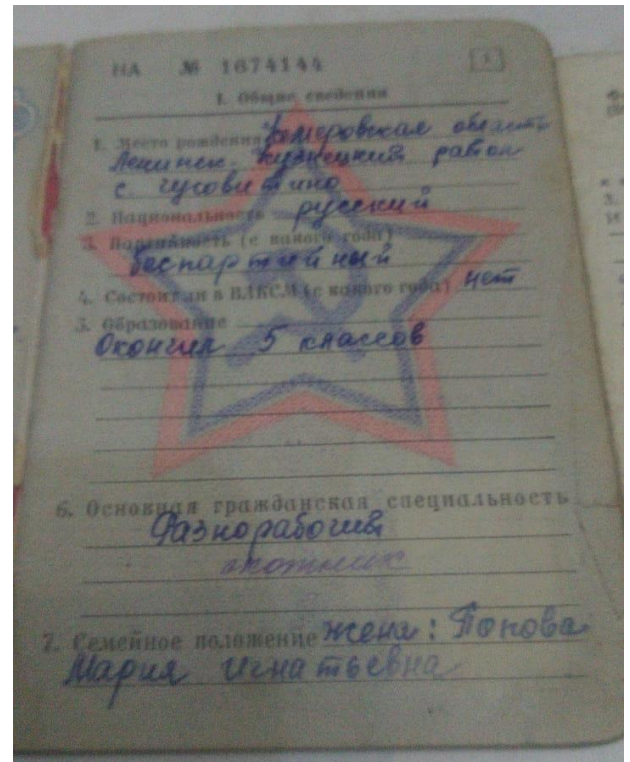 НА № 1674144 1
I. Общие сведения
1. Место рождения Кемеровская область
Ленинск-Кузнецкий район
с. Чусовитино
2. Национальность русский
3. Партийность (с какого года)
беспартийный
4. Состоял ли в ВЛКСМ (с какого года) нет
5. Образование
Окончил 5 классов
6. Основная гражданская специальность
Разнорабочий
охотник
7. Семейное положение жена: Попова
Мария Игнатьевна